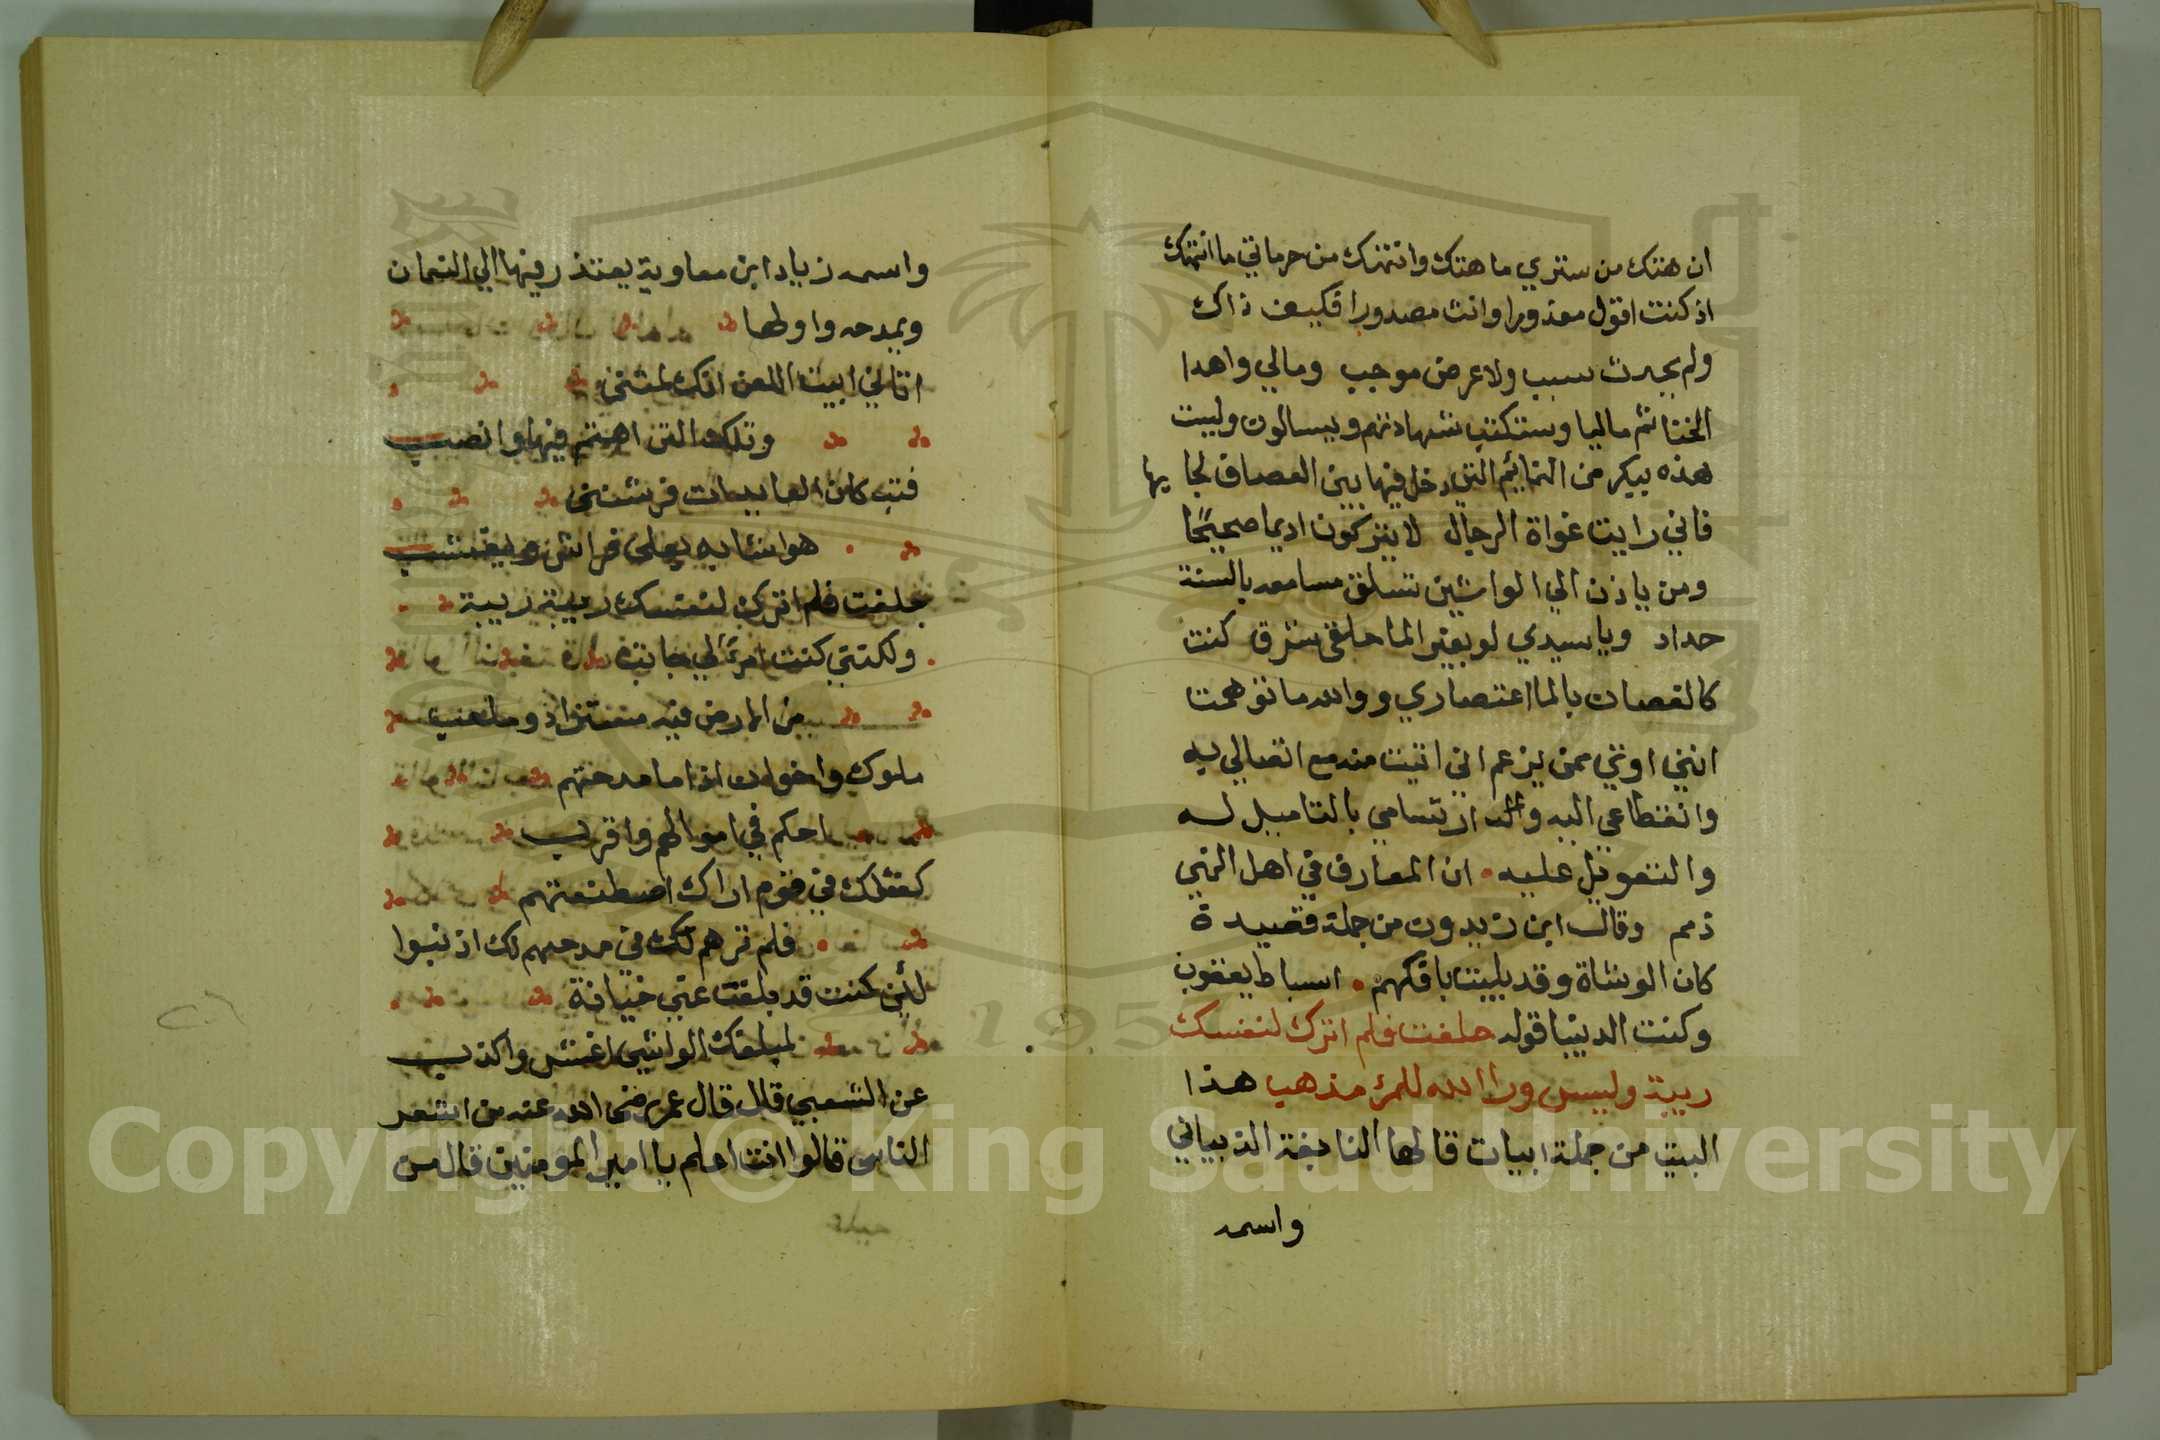 ان هتك من ستري ما هتك وانتهك من حرماتي ما انتهك
اذ كنت اقول معذورا وانت مصدورا فكيف ذاك
ولم يحدث سبب ولا عرض موجب ومالي واهدا
الختا ثم ماليا وستكتب شهادتهم ويسالون وليت
هذه ببكر من النمايم التي دخل فيها بين العصا ولحايها
فاني رايت غواة الرجال لا يتركون اديما صحيحا
ومن ياذن الي الواشين تسلق مسامعه بالسنة
حداد ويا سيدي لو بغير الما حلقي شرق كنت
كالغصان بالما اعتصاري و والله ما توهمت
انني اوتي ممن يزعم اني اتيت منه مع اتصالي به
وانقطاعي اليه والله ارتسامي بالتاميل له
والتعويل عليه ان المعارف في اهل النهي
ذمم وقال ابن زيدون من جملة قصيدة
كان الوشاة وقد بليت بافكهم اسباط يعقوب
وكنت الديبا قوله حلفت فلم اترك لنفسك
ريبة وليس ورا الله للمرء مذهب هذا
البيت من جملة ابيات قالها النابغة الذبياني
واسمه
واسمه زياد ابن معاوية يعتذر فيها الي النعمان
ويمدحه واولها
اتاني ابيت اللعن انك لمتني
وتلك التي اهتم فيها وانصب
فبت كان العايدات فرشنني
هواشا به يعلى فراشي ويقشب
حلفت فلم اترك لنفسك ريبة ريبة
ولكنني كنت امرئا لي جانب
من الارض فيه مستراد ومذهب
ملوك واخوان اذا ما مدحتهم
احكم في اموالهم واقرب
كفعلك في قوم اراك اصطنعتهم
فلم ترهم لك في مدحهم لك اذنبوا
لئن كنت قد بلغت عني خيانة
لمبلغك الواشي اغش واكذب
عن الشعبي قال قال عمر رضي الله عنه من اشعر
الناس قالوا انت اعلم يا امير المومنين قال من
1957
Copyright © King Saud University